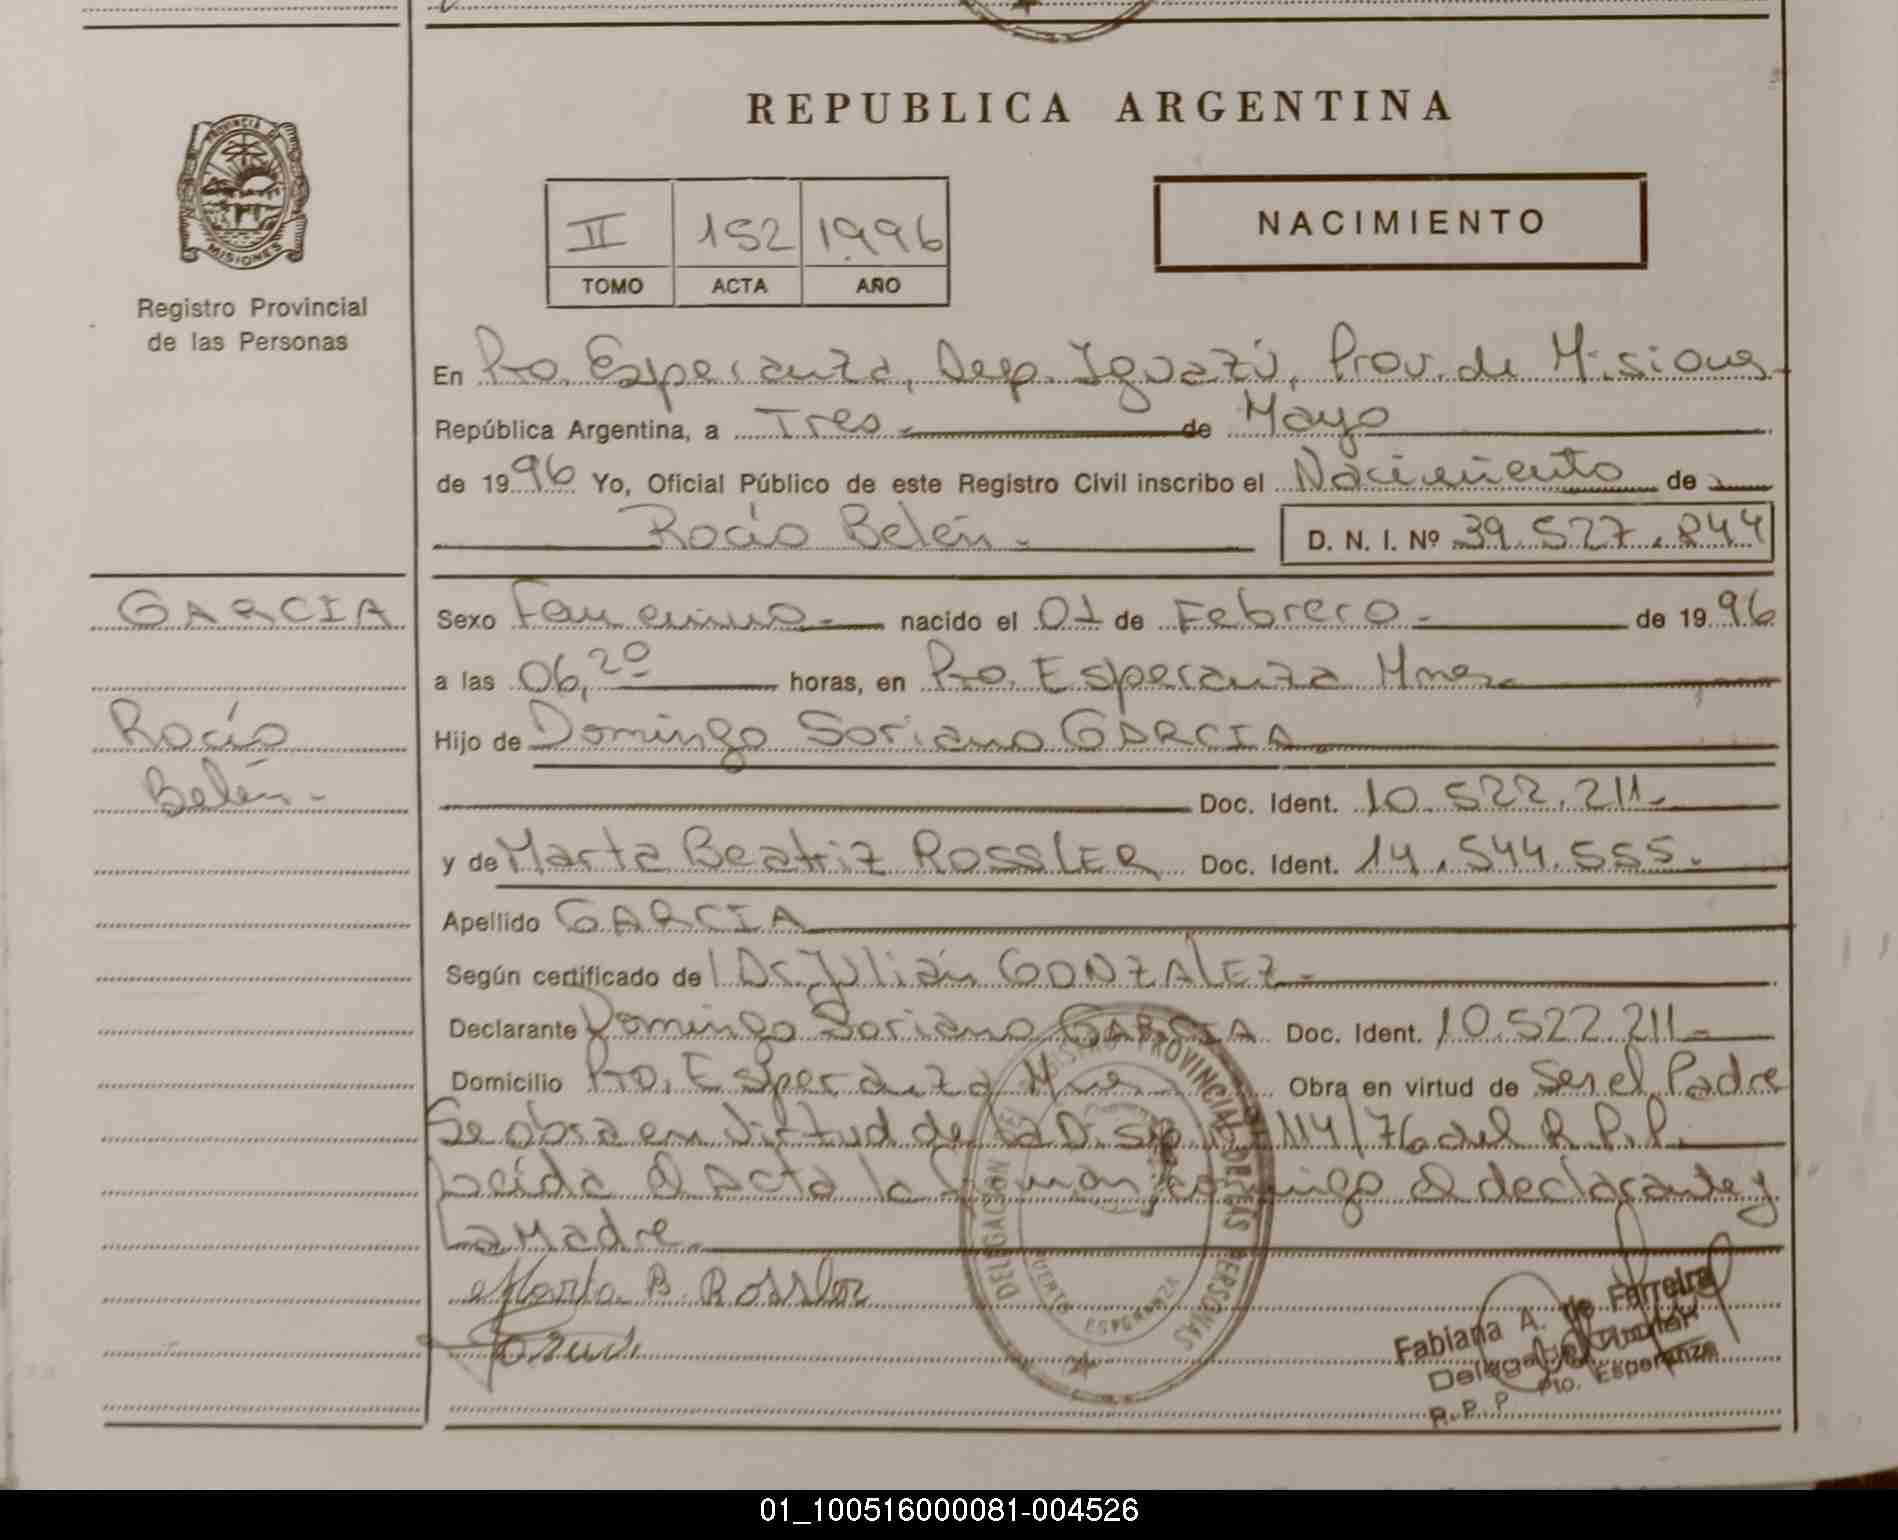 REPUBLICA ARGENTINA
PROVINCIA DE
MISIONES
Registro Provincial
de las Personas
II 152 1996
TOMO ACTA AÑO
NACIMIENTO
En Pto. Esperanza, Dep. Iguazú, Prov. de Misiones
República Argentina, a Tres.- de Mayo
de 1996 Yo, Oficial Público de este Registro Civil inscribo el Nacimiento de
Rocío Belén.- D. N. I. Nº 39.527.844
GARCIA
Rocío
Belén.-
Sexo Femenino.- nacido el 01 de Febrero.- de 1996
a las 06,20 horas, en Pto. Esperanza Mnes.-
Hijo de Domingo Soriano GARCIA.-
Doc. Ident. 10.522.211.-
y de Marta Beatriz ROSSLER Doc. Ident. 14.544.555.-
Apellido GARCIA
Según certificado de l Dr. Julián GONZALEZ.-
Declarante Domingo Soriano GARCIA Doc. Ident. 10.522.211.-
Domicilio Pto. Esperanza Mnes. Obra en virtud de Ser el Padre
Se obra en virtud de la Disp. 114/76 del R.P.P.
Leída el acta la firman conmigo el declarante y
La Madre.
Marta B. Rossler
REGISTRO PROVINCIAL DE LAS PERSONAS
DELEGACION
PUERTO ESPERANZA
Fabiana A. de Ferreira
Delegada Titular
R.P.P Pto. Esperanza
01_100516000081-004526